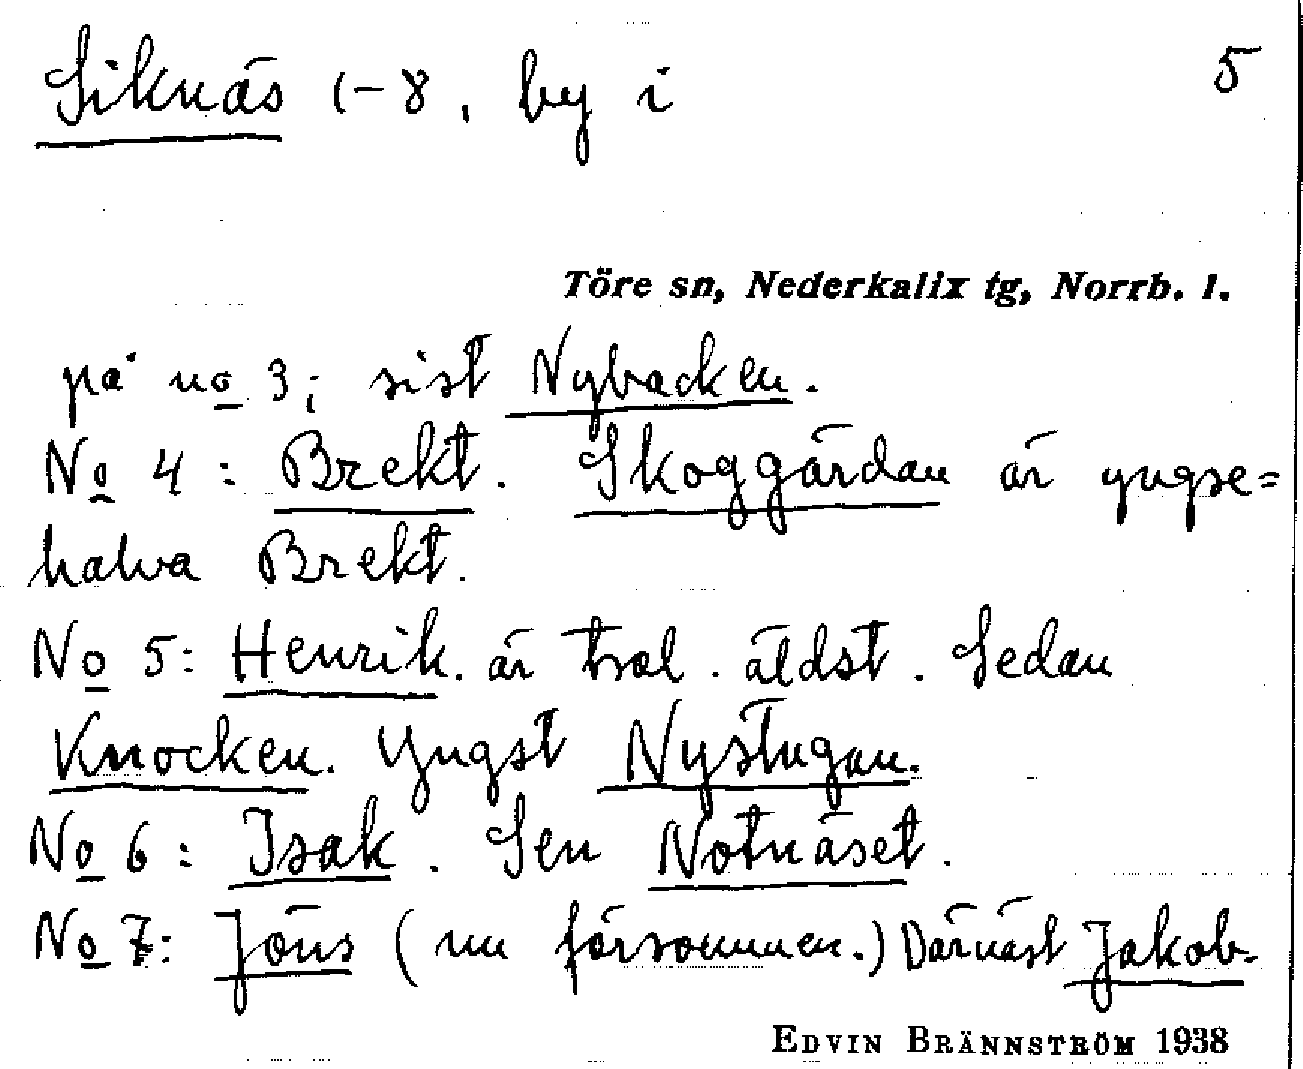 Siknäs 1-8, by i 5
Töre sn, Nederkalix tg, Norrb. l.
på no 3; sist Nybacken.
No 4: Brekt. Skoggårdan är yngre=
halva Brekt.
No 5: Henrik. är trol. äldst. Sedan
Knocken. Yngst Nystugan.
No 6: Isak. Sen Notnäset.
No 7: Jöns (nu försvunnen.) Därnäst Jakob-
EDVIN BRÄNNSTRÖM 1938